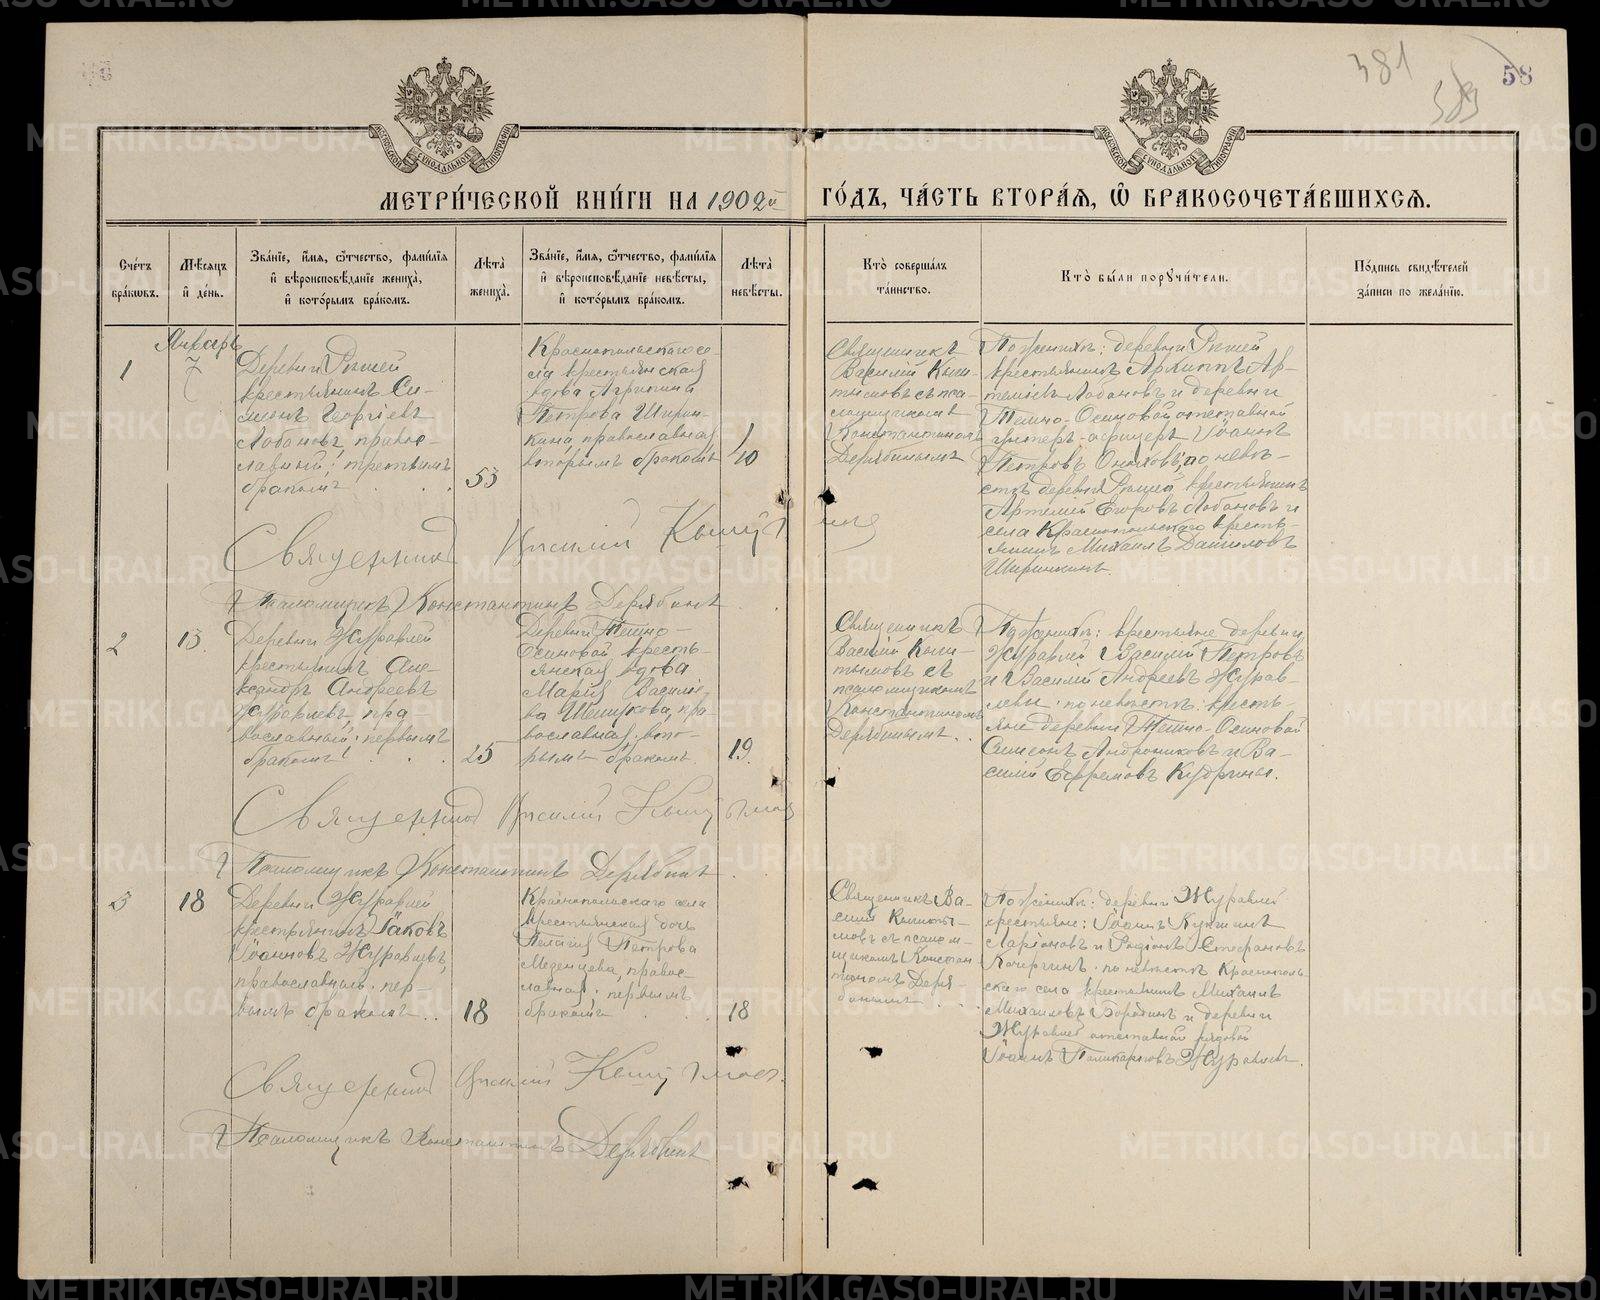 381
383
58
МЕТРИ́ЧЕСКОЙ КНИ́ГИ НА 1902й ГО́ДЪ, ЧА́СТЬ ВТОРА́Я, Ѡ БРАКОСОЧЕТА́ВШИХСЯ.
Сче́тъ бра́кѡвъ.
Мѣ́сяцъ и де́нь.
Зва́нїе, и́мя, ѻ́тчество, фами́лїя и вѣроисповѣ́данїе жениха̀, и кото́рымъ бра́комъ.
Лѣ́та жениха̀.
Зва́нїе, и́мя, ѻ́тчество, фами́лїя и вѣроисповѣ́данїе невѣ́сты, и кото́рымъ бра́комъ.
Лѣ́та невѣ́сты.
Кто̀ соверша́лъ та́инство.
Кто̀ бы́ли порꙋчи́тели.
По́дпись свидѣ́телей за́писи по жела́нїю.
1
Январь
7
Деревни
крестьянинъ Си-
меонъ Георгіевъ
Лобановъ, правос-
лавный; третьимъ
бракомъ
53
Краснопольскаго се-
ла крестьянская
вдова Агрипина
Петрова Ширин-
кина, православная
вторымъ бракомъ
40
Священникъ
Василій Кыш-
тымовъ съ пса-
ломщикомъ
Константиномъ
Дерябинымъ
По женихѣ: деревни
крестьянинъ Архиппъ Ар-
темьевъ Лобановъ и деревни
Темно-Осиновой отставной
унтеръ-офицеръ Іоаннъ
Петровъ по невѣ-
стѣ деревни крестьянинъ
Артемій Егоровъ Лобановъ и
села Краснопольскаго кресть-
янинъ Михаилъ Даниловъ
Ширинкинъ.
Священникъ Василій Кыштымовъ
Псаломщикъ Константинъ Дерябинъ
2
13.
Деревни Журавлей
крестьянинъ Але-
ксандръ Андреевъ
Журавлевъ, пра-
вославный; первымъ
бракомъ
25
Деревни Темно-
Осиновой кресть-
янская вдова
Марія Василье-
ва пра-
вославная; вто-
рымъ бракомъ.
19.
Священникъ
Василій Кыш-
тымовъ съ
псаломщикомъ
Константиномъ
Дерябинымъ
По женихѣ: крестьяне деревни
Журавлей Василій Петровъ
и Василій Андреевъ Журав-
левы; по невѣстѣ: кресть-
яне деревни Темно-Осиновой
Симеонъ Андрониковъ и Ва-
силій Ефремовъ Кудрины.
Священникъ Василій Кыштымовъ
Псаломщикъ Константинъ Дерябинъ
3
18
Деревни Журавлей
крестьянинъ Іаковъ
Іоанновъ Журавлевъ,
православный; пер-
вымъ бракомъ
18
Краснопольскаго села
крестьянская дочь
Пелагія Петрова
Меденцева, правос-
лавная; первымъ
бракомъ
18
Священникъ Ва-
силій Кышты-
мовъ съ псалом-
щикомъ Констан-
тиномъ Деря-
бинымъ
По женихѣ: деревни Журавлей
крестьяне: Іоаннъ
Ларіоновъ и Родіонъ Стефановъ
Кочергинъ; по невѣстѣ Краснополь-
скаго села крестьянинъ Михаилъ
Михаиловъ Бородинъ и деревни
Журавлей отставной рядовой
Іоаннъ Поликарповъ Журавлевъ.
Священникъ Василій Кыштымовъ
Псаломщикъ Константинъ Дерябинъ
METRIKI.GASO-URAL.RU